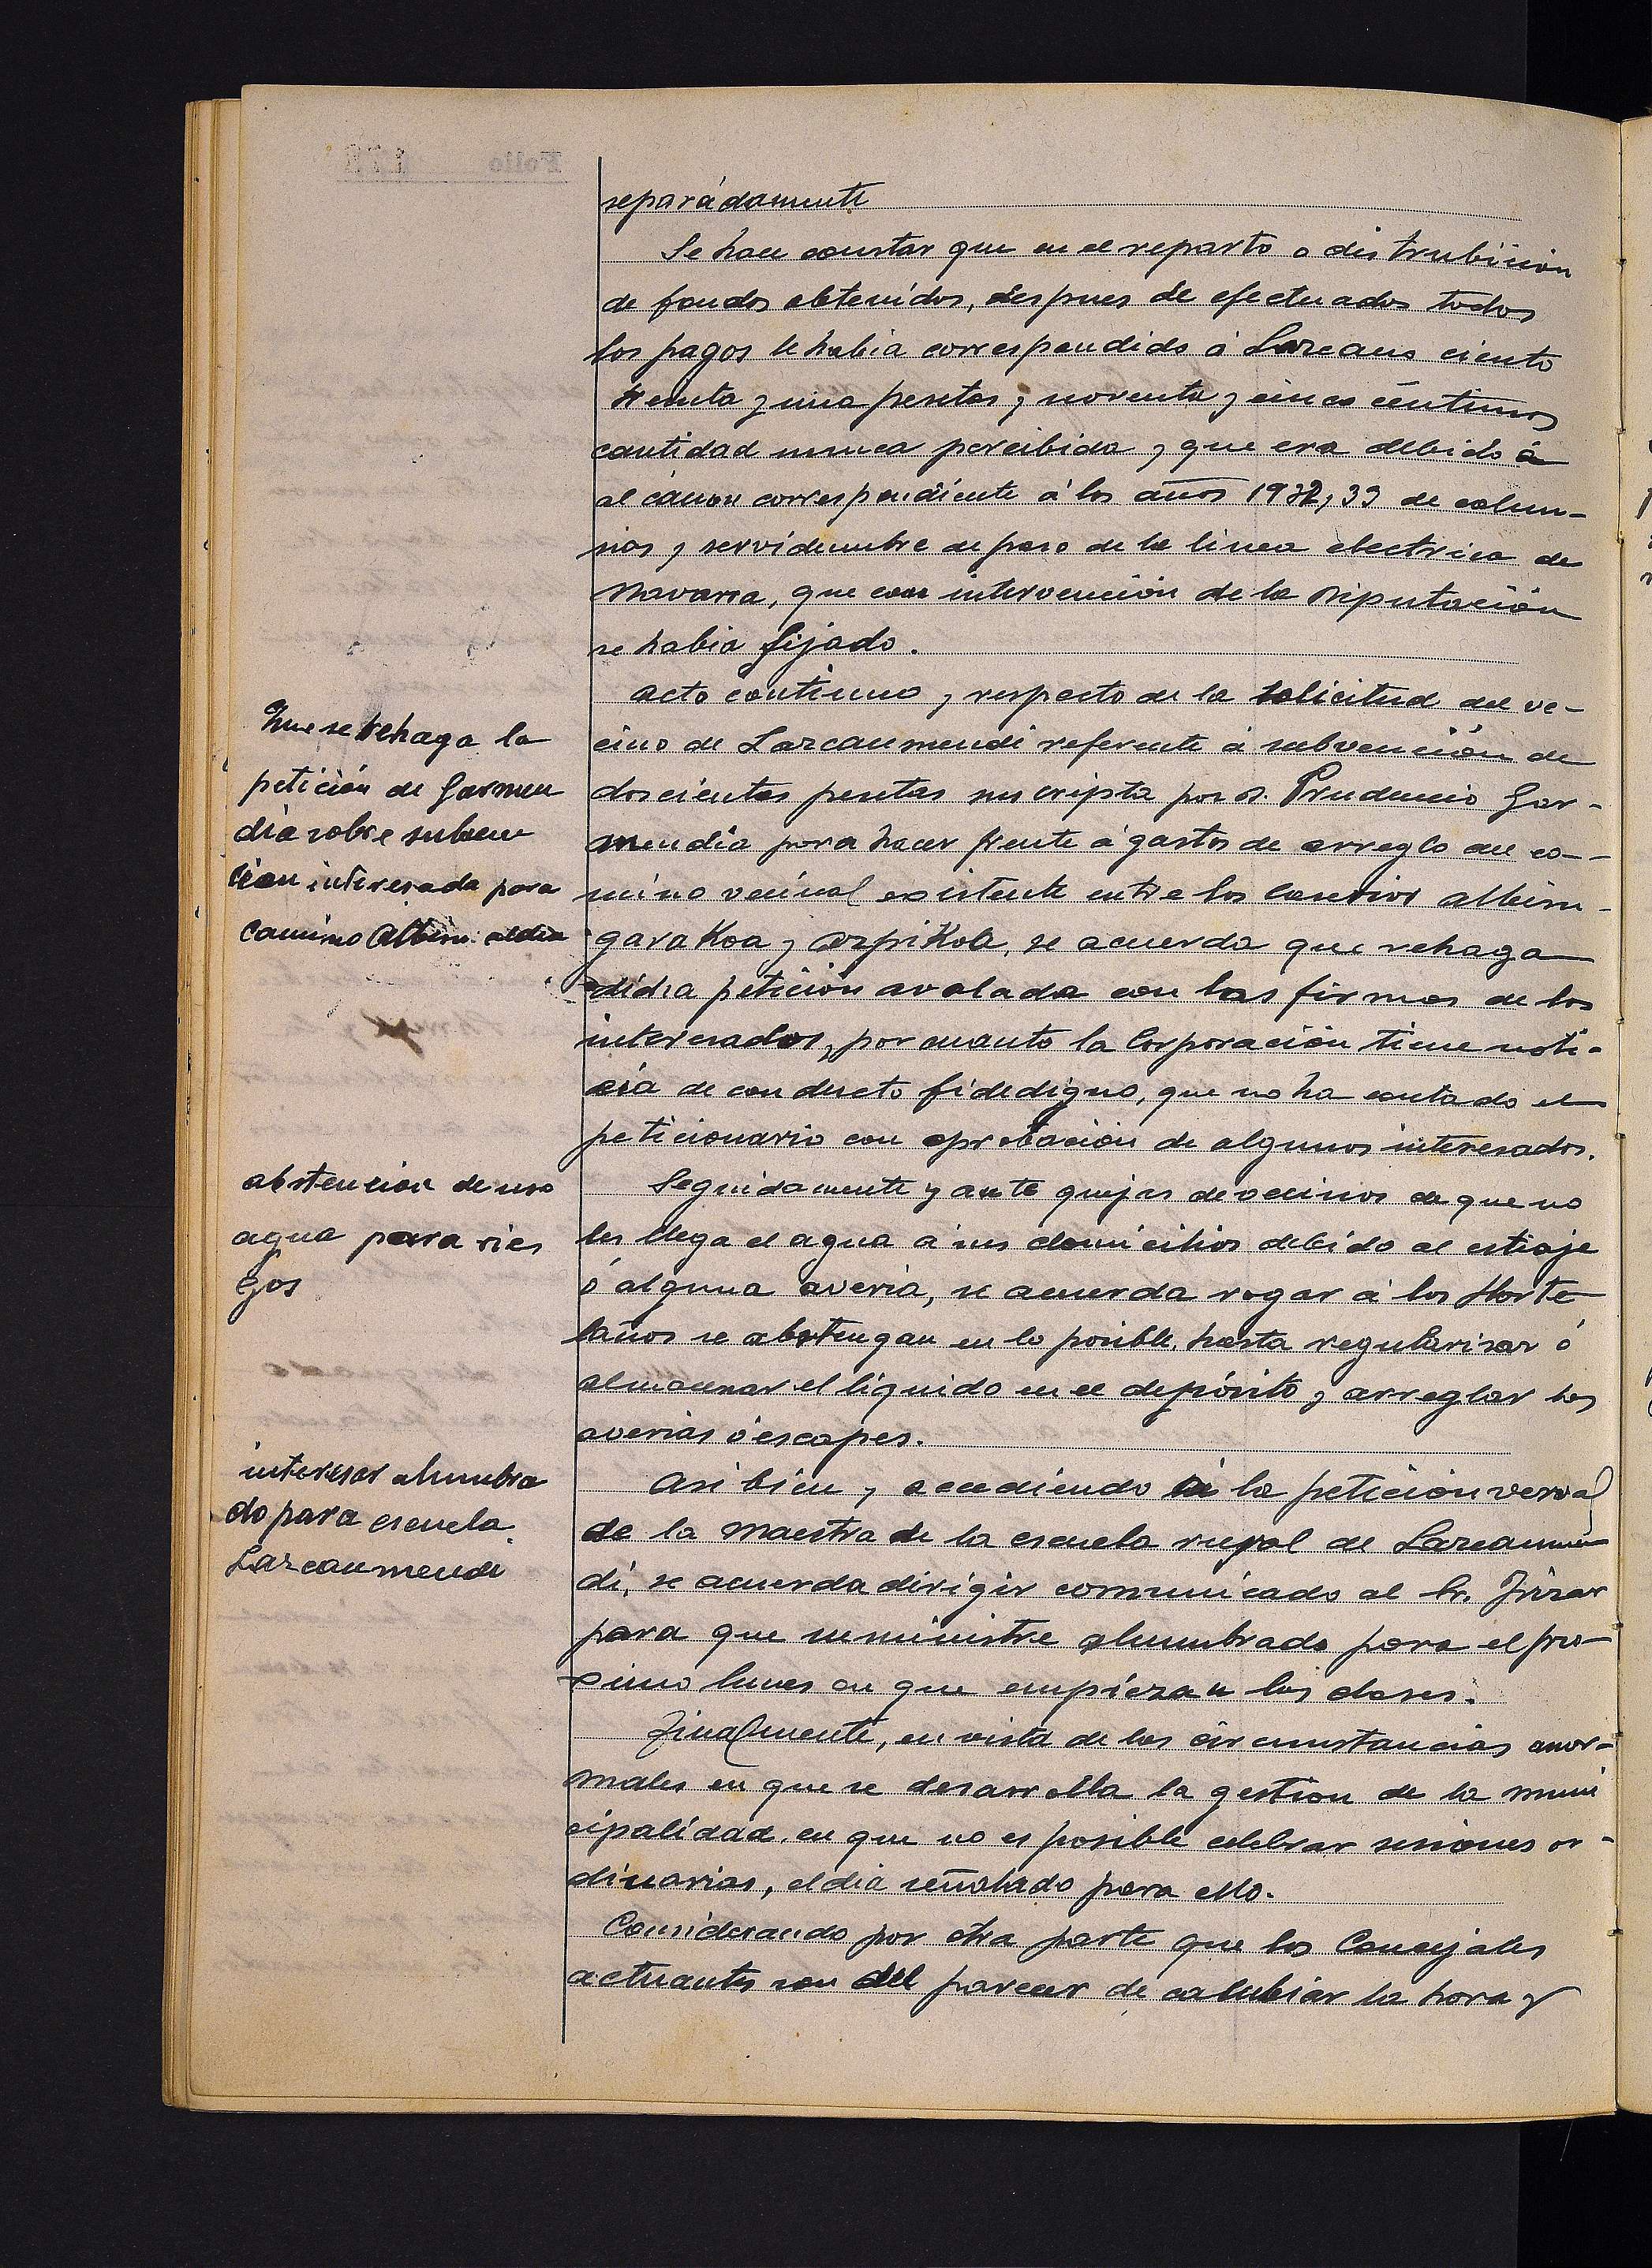 separádamente
Se hace constar que en el reparto o distrubución
de fondos obtenidos, despues de efectuados todos
los pagos le habia correspondido á Lazcano ciento
treinta y una pesetas y noventa y cinco céntimos
cantidad nunca percibida y que era debido á
al cánon correspondiente á los años 1932 y 33 de colum-
nas y servidumbre de paso de la linea electrica de
Navarra, que con intervención de la Diputación
se habia fijado.
Que se rehaga la
petición de Garmen
dia sobre subven
ción interesada para
camino Albisu
Acto continuo y respecto de la solicitud del ve-
cino de Lazcaumendi referente á subvención de
doscientas pesetas suscripta por D. Prudencio Gar-
mendia para hacer frente á gastos de arreglo del ca-
mino vecinal existente entre los caserios Albisu-
garakoa y Azpikola, se acuerda que rehaga
dicha petición avalada con las firmas de los
interesados, por cuanto la Corporación tiene noti-
cia de conducto fidedigno, que no ha contado el
peticionario con aprobación de algunos interesados.
abstención de uso
agua para rie
gos
Seguidamente y ante quejas de vecinos de que no
les llega el agua á sus domicilios debido al estiaje
ó alguna averia, se acuerda rogar á los Horte
lanos se abstengan en lo posible, hasta regularizar ó
almacenar el líquido en el depósito y arreglar las
averias ó escapes.
interesar alumbra
do para escuela
Lazcaumendi
Asi bien y accediendo á la petición verval
de la Maestra de la escuela rural de Lazcaumen
di, se acuerda dirigir comunicado al Sr. Irizar
para que suministre alumbrado para el pro-
ximo lunes en que empiezan las clases.
Finalmente, en vista de las circunstancias anor-
males en que se desarrolla la gestion de la muni
cipalidad en que no es posible celebrar sesiones or-
dinarias, el dia señalado para ello.
Considerando por otra parte que los Concejales
actuantes son del parecer de cambiar la hora y